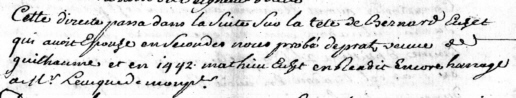 Cette directe passa dans la suite sur la tete de Bernard
qui avoit Epousé en secondes noces probe deprat veuve de
guilhaume et en 1492 mathieu en Rendit Encore homage
a Mr. L'eveque de montp.r